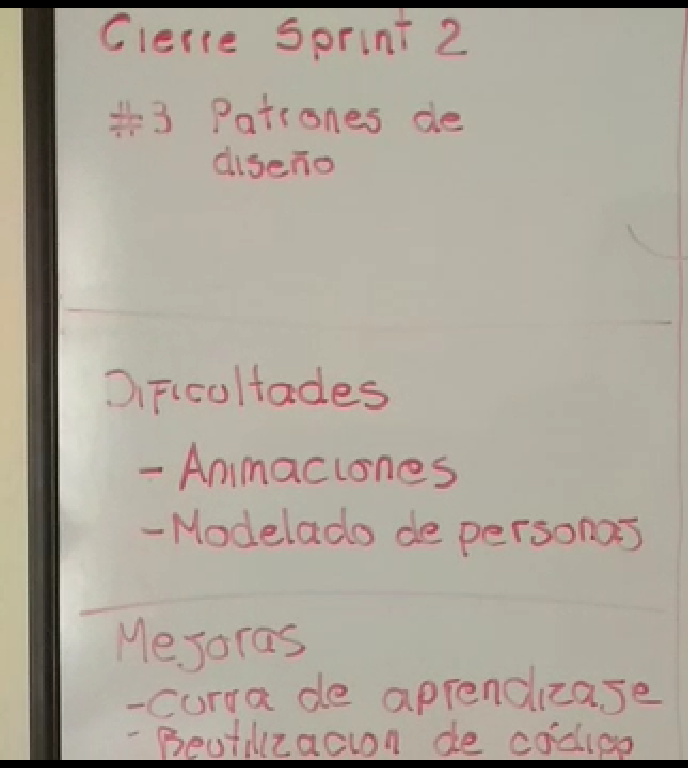 Cierre Sprint 2
#3 Patrones de
diseño
Dificultades
- Animaciones
- Modelado de personas
Mejoras
- curva de aprendizaje
- Reutilizacion de código